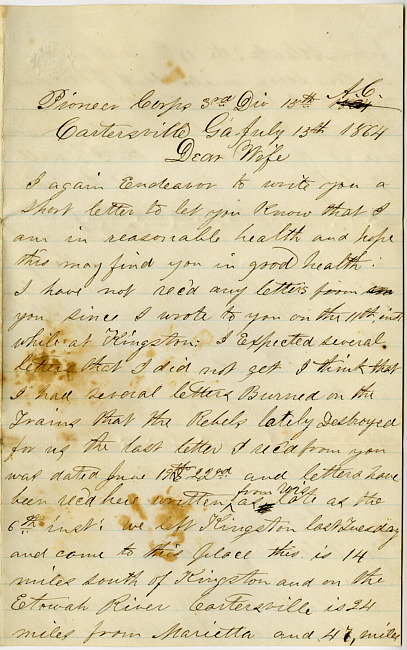 Pioneer Corps 3rd Div 15th A.C.
Cartersville Ga July 13th 1864
Dear Wife
I again Endeavor to write you a
short letter to let you Know that I
am in reasonable health and hope
this may find you in good health:
I have not rec'd any letters from
you since I wrote to you on the 11th, inst
while at Kingston. I Expected several
letters that I did not get I think that
I had several letters Burned on the
Trains that the Rebels lately Destroyed
for us the last letter I rec'd from you
was dated June 22nd and letters have
been rec'd here written from Wis. as late as the
6th inst: we left Kingston last Tuesday
and come to this place this is 14
miles south of Kingston and on the
Etowah River Cartersville is 24
miles from Marietta and 47, miles